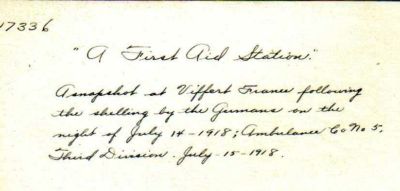 17336
"A First Aid Station."
A snapshot at Viffert France following
the shelling by the Germans on the
night of July 14-1918; Ambulance Co No 5,
Third Division. July-15-1918.